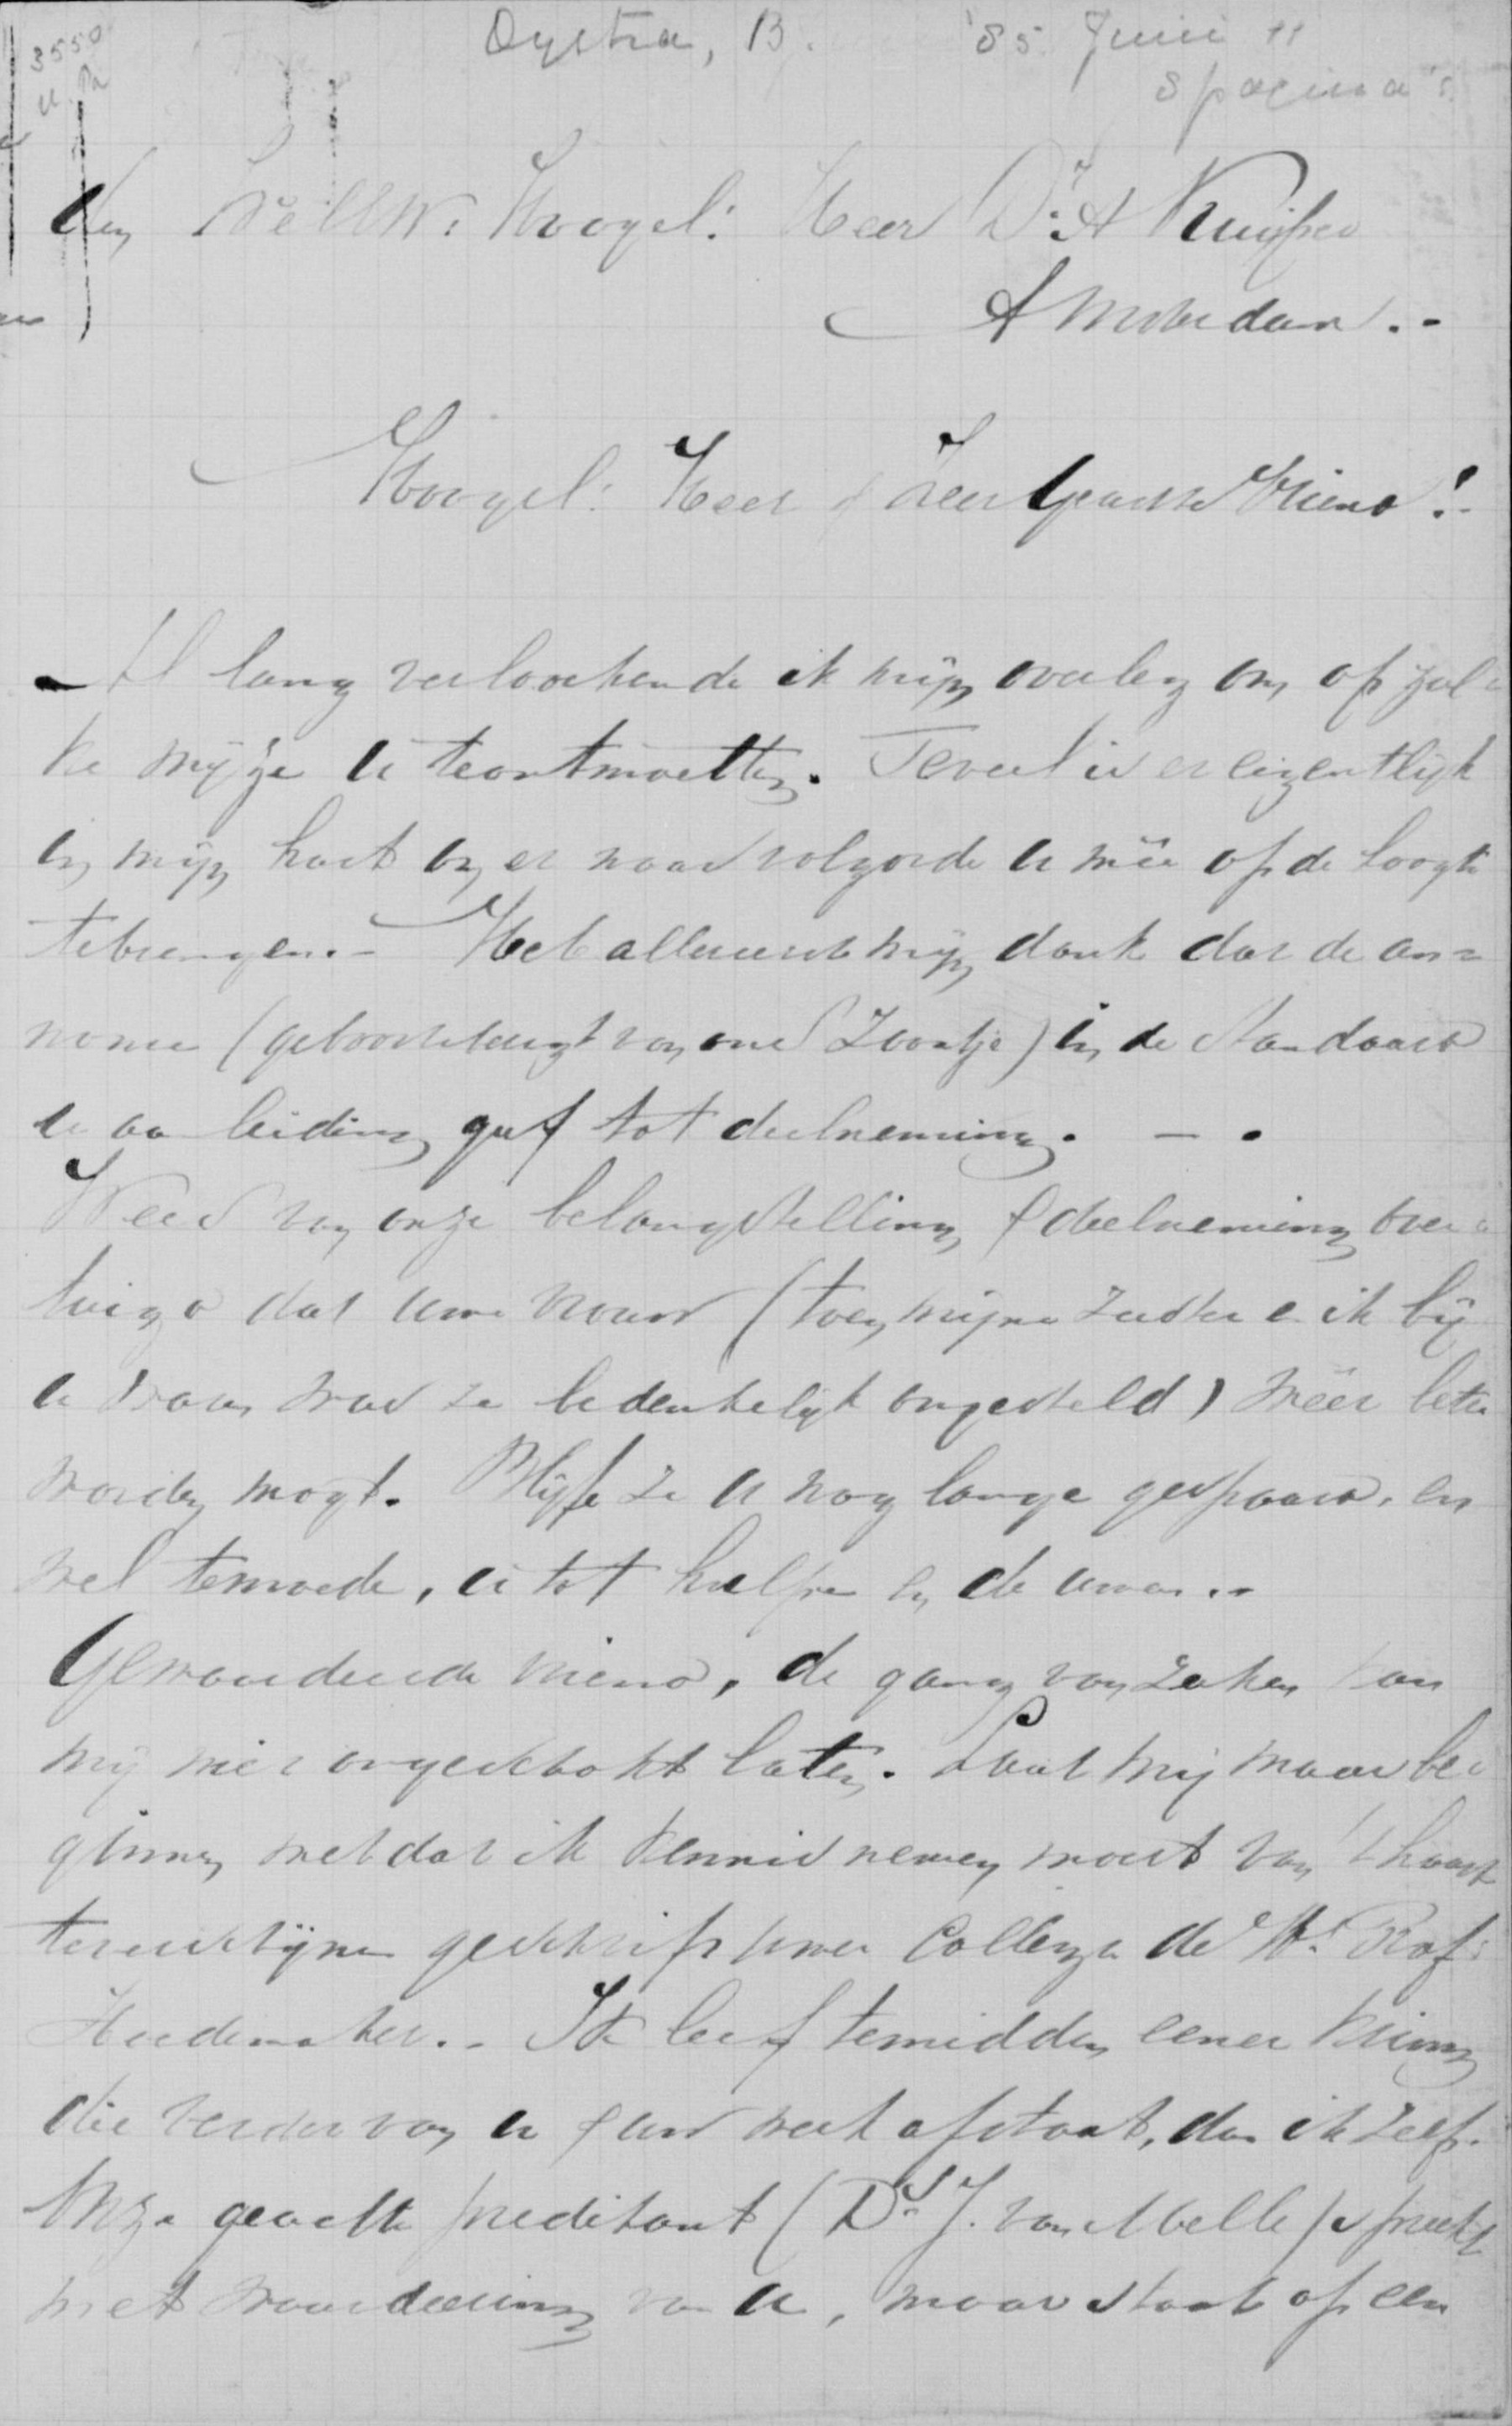 3550
Dystra, B. '85 Juni 11
8 pagina's
Den WelEerw. Hoogel: Heer Dr. A Kuijper
Amsterdam.-
Hoogel: Heer & Zeer Geachte Vriend!-
- Al lang verloochende ik mijn overleg om op zul-
ke wijze U te ontmoetten. Te veel is er eigentlijk
in mijn hart om er naar volgorde U mêe op de hoogte
te brengen.- Heb allereerst mijn dank dat de an-
nonce (geboortebrengt van ons Zoontje) in de Standaard
U aanleiding gaf tot deelneming. - .
Wees van onze belangstelling & deelneming over-
tuigd dat uwe vrouw (toen mijne zuster en ik bij
U waren was ze bedenkelijk ongesteld) wêer beter
worden mogt. Blijfe ze U nog lange gespaard, en
wel te moede, U tot hulpe en de uwen..
Gewaardeerde vriend, de gang van zaken kan
mij niet ongeschokt laten. Laat mij maar be-
ginnen met dat ik kennis nemen moest van 't haast
geschrift uwer Collega de H. Prof:
Hoedemaker.- Ik leef temidden eener kring
die verder van U & uw werk afstaat, dan ik zelf.
Onze geachte predikant (Ds. J. van Melle) spreekt
met waardeering van U, maar staat op een